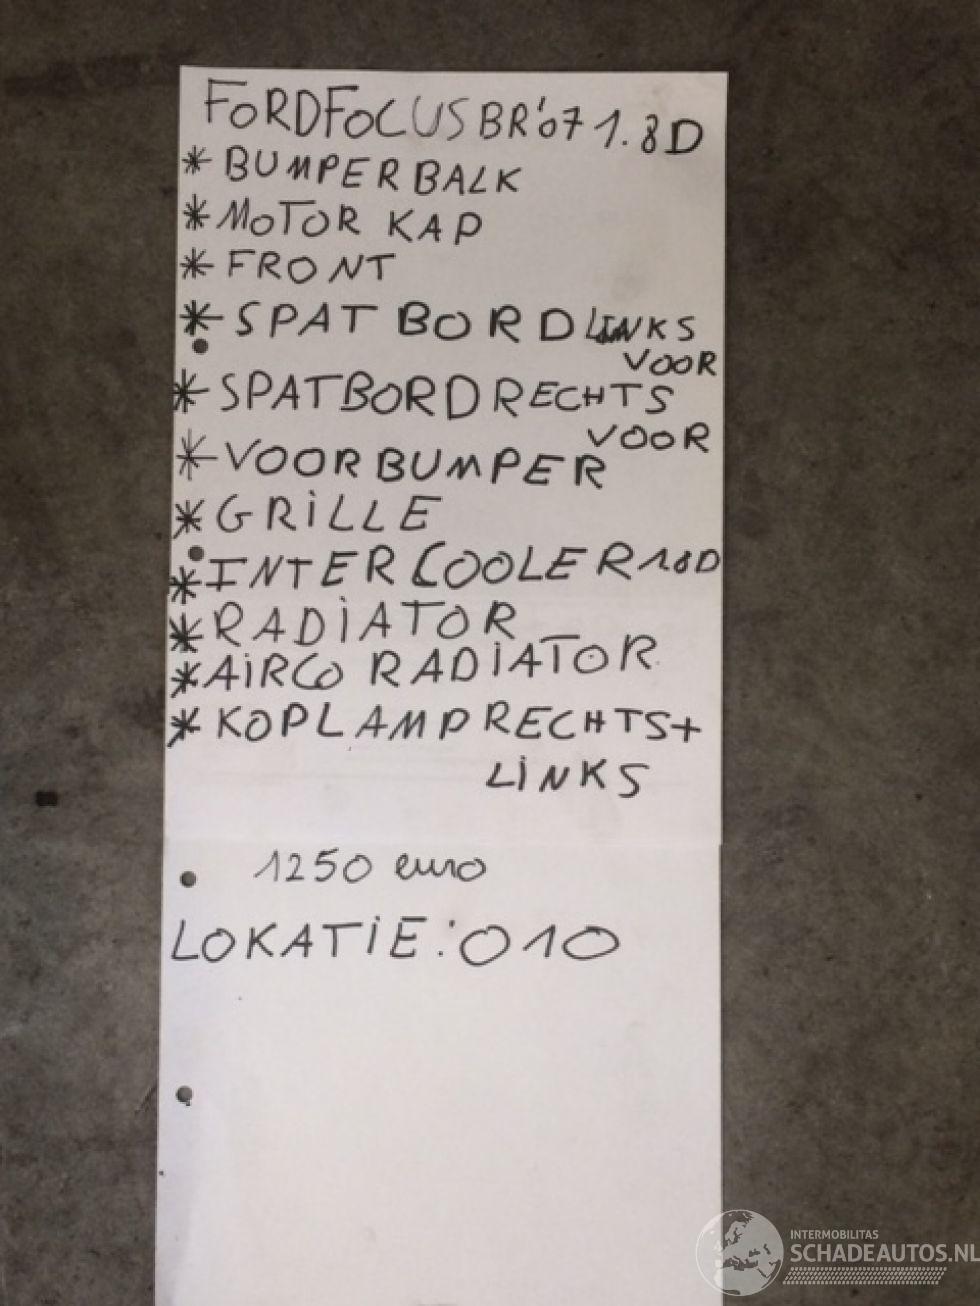 FORD FOCUS BR'07 1.8D
* BUMPERBALK
* MOTOR KAP
* FRONT
* SPATBORD LINKS
VOOR
* SPATBORD RECHTS
VOOR
* VOORBUMPER
* GRiLLE
* INTERCOOLER 1.8D
* RADiATOR
* AiRCO RADiATOR
* KOPLAMP RECHTS+
LiNKS
1250 euro
LOKATiE: 010
INTERMOBILITAS
SCHADEAUTOS.NL